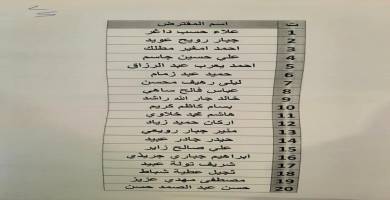 ت اسم المقترض
1 علاء حسب داغر
2 جبار رويح عويد
3 احمد امغير مطلك
4 علي حسين جاسم
5 احمد يعرب عبد الرزاق
6 حميد عبد زمام
7 ليلى رهيف محسن
8 عباس فالح ساهي
9 خالد جار الله راشد
10 بسام كاظم كريم
11 هاشم محمد خلاوي
12 اركان حميد زياد
13 منير جبار رويعي
14 حيدر جادر عبيد
15 علي صالح زاير
16 ابراهيم جباري جريذي
17 شريف تولة عبيد
18 نجيل عطية شباط
19 مصطفى مهدي عزيز
20 حسن عبد الصمد حسن